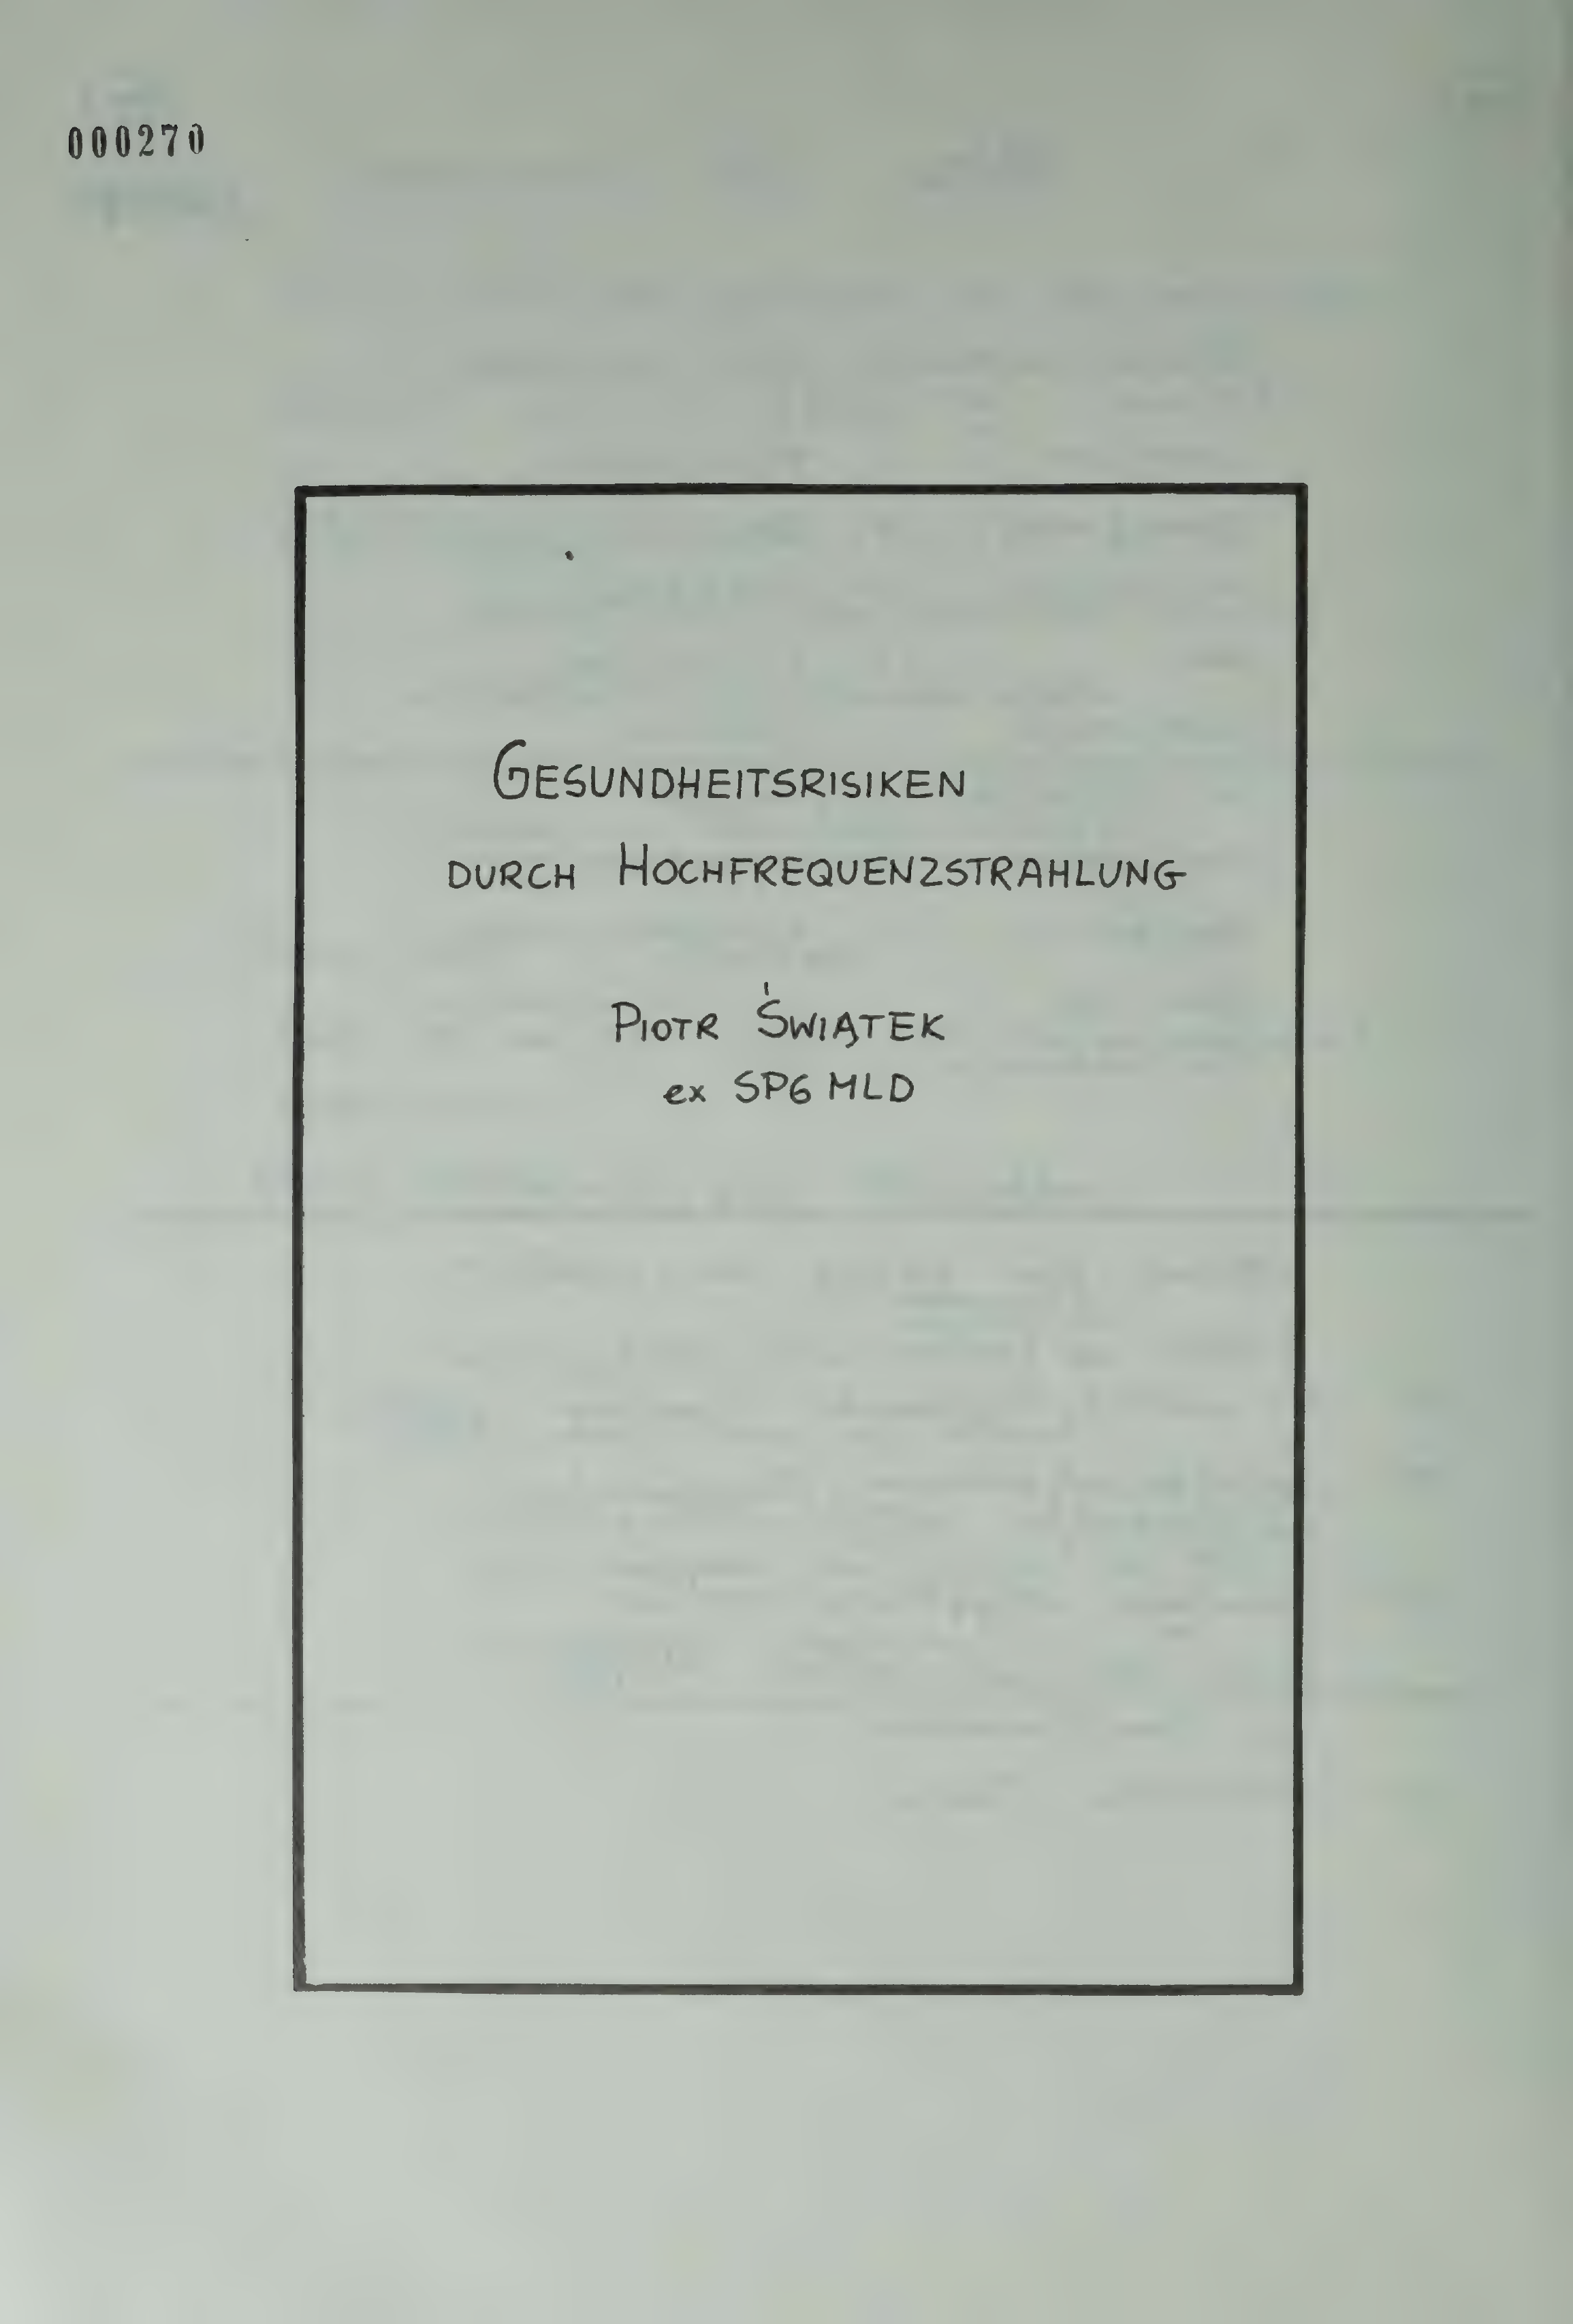 000270
GESUNDHEITSRISIKEN
DURCH HOCHFREQUENZSTRAHLUNG
PIOTR ŚWIĄTEK
ex SP6 MLD